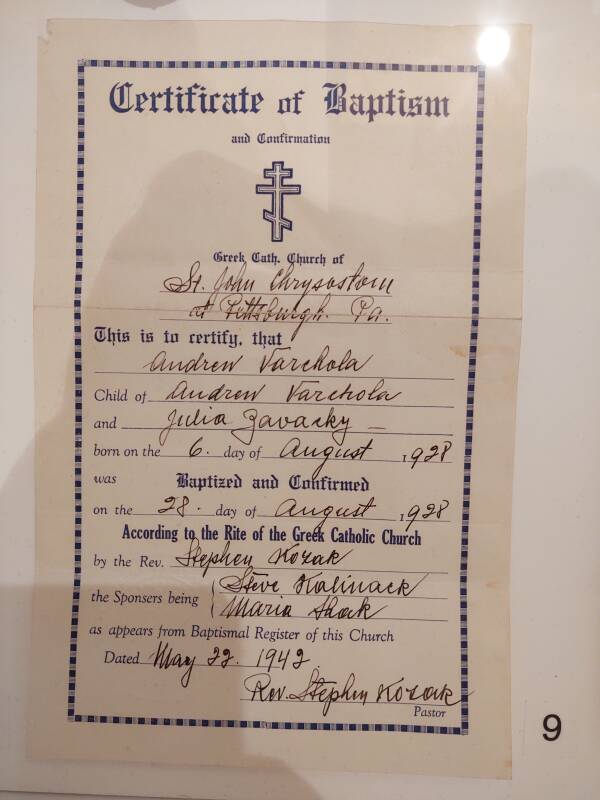 Certificate of Baptism
and Confirmation
Greek Cath. Church of
St. John Chrysostom
at Pittsburgh. Pa.
This is to certify, that
Andrew Varchola
Child of Andrew Varchola
and Julia Zavacky
born on the 6. day of August 1928
was Baptized and Confirmed
on the 28. day of August 1928
According to the Rite of the Greek Catholic Church
by the Rev. Stephen Kozak
Steve Kalinack
the Sponsers being
Maria Shak
as appears from Baptismal Register of this Church
Dated May 22. 1942.
Rev. Stephen Kozak
Pastor
9